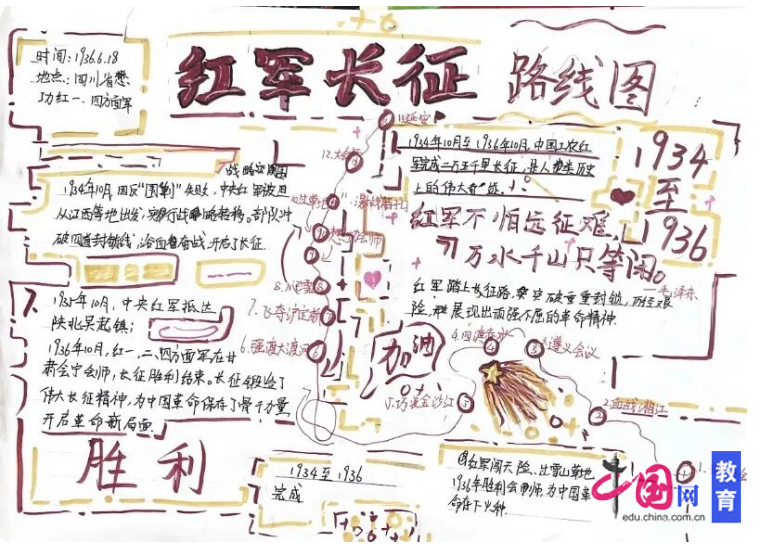 红军长征 路线图
时间:1936.6.18
地点:四川省懋
功红一、四方面军
1934年10月至1936年10月,中国工农红
军完成二万五千里长征,是人类历史
上的伟大奇迹
1934
至
1936
红军不怕远征难,
万水千山只等闲。
——毛泽东
红军踏上长征路,突破重重封锁,历经艰
险,展现出顽强不屈的革命精神。
战略
1934年10月,因反"围剿"失败,中央红军被迫
从江西等地出发,实行战略转移。部队冲
破四道封锁线,浴血奋战,开启了长征
1935年10月,中央红军抵达
陕北吴起镇;
1936年10月,红一、二、四方面军在甘
肃会宁会师,长征胜利结束。长征锻造了
伟大长征精神,为中国革命保存了骨干力量
开启革命新局面
胜利
1934至1936
完成
红军闯天险、过雪山草地
1936年胜利会师,为中国革
命存下火种.
12.
8.
7.飞夺泸定桥
6.强渡大渡河
5.巧渡金沙江
4.四渡赤水
3.遵义会议
2.血战湘江
1.
加油
中国网
教育
edu.china.com.cn